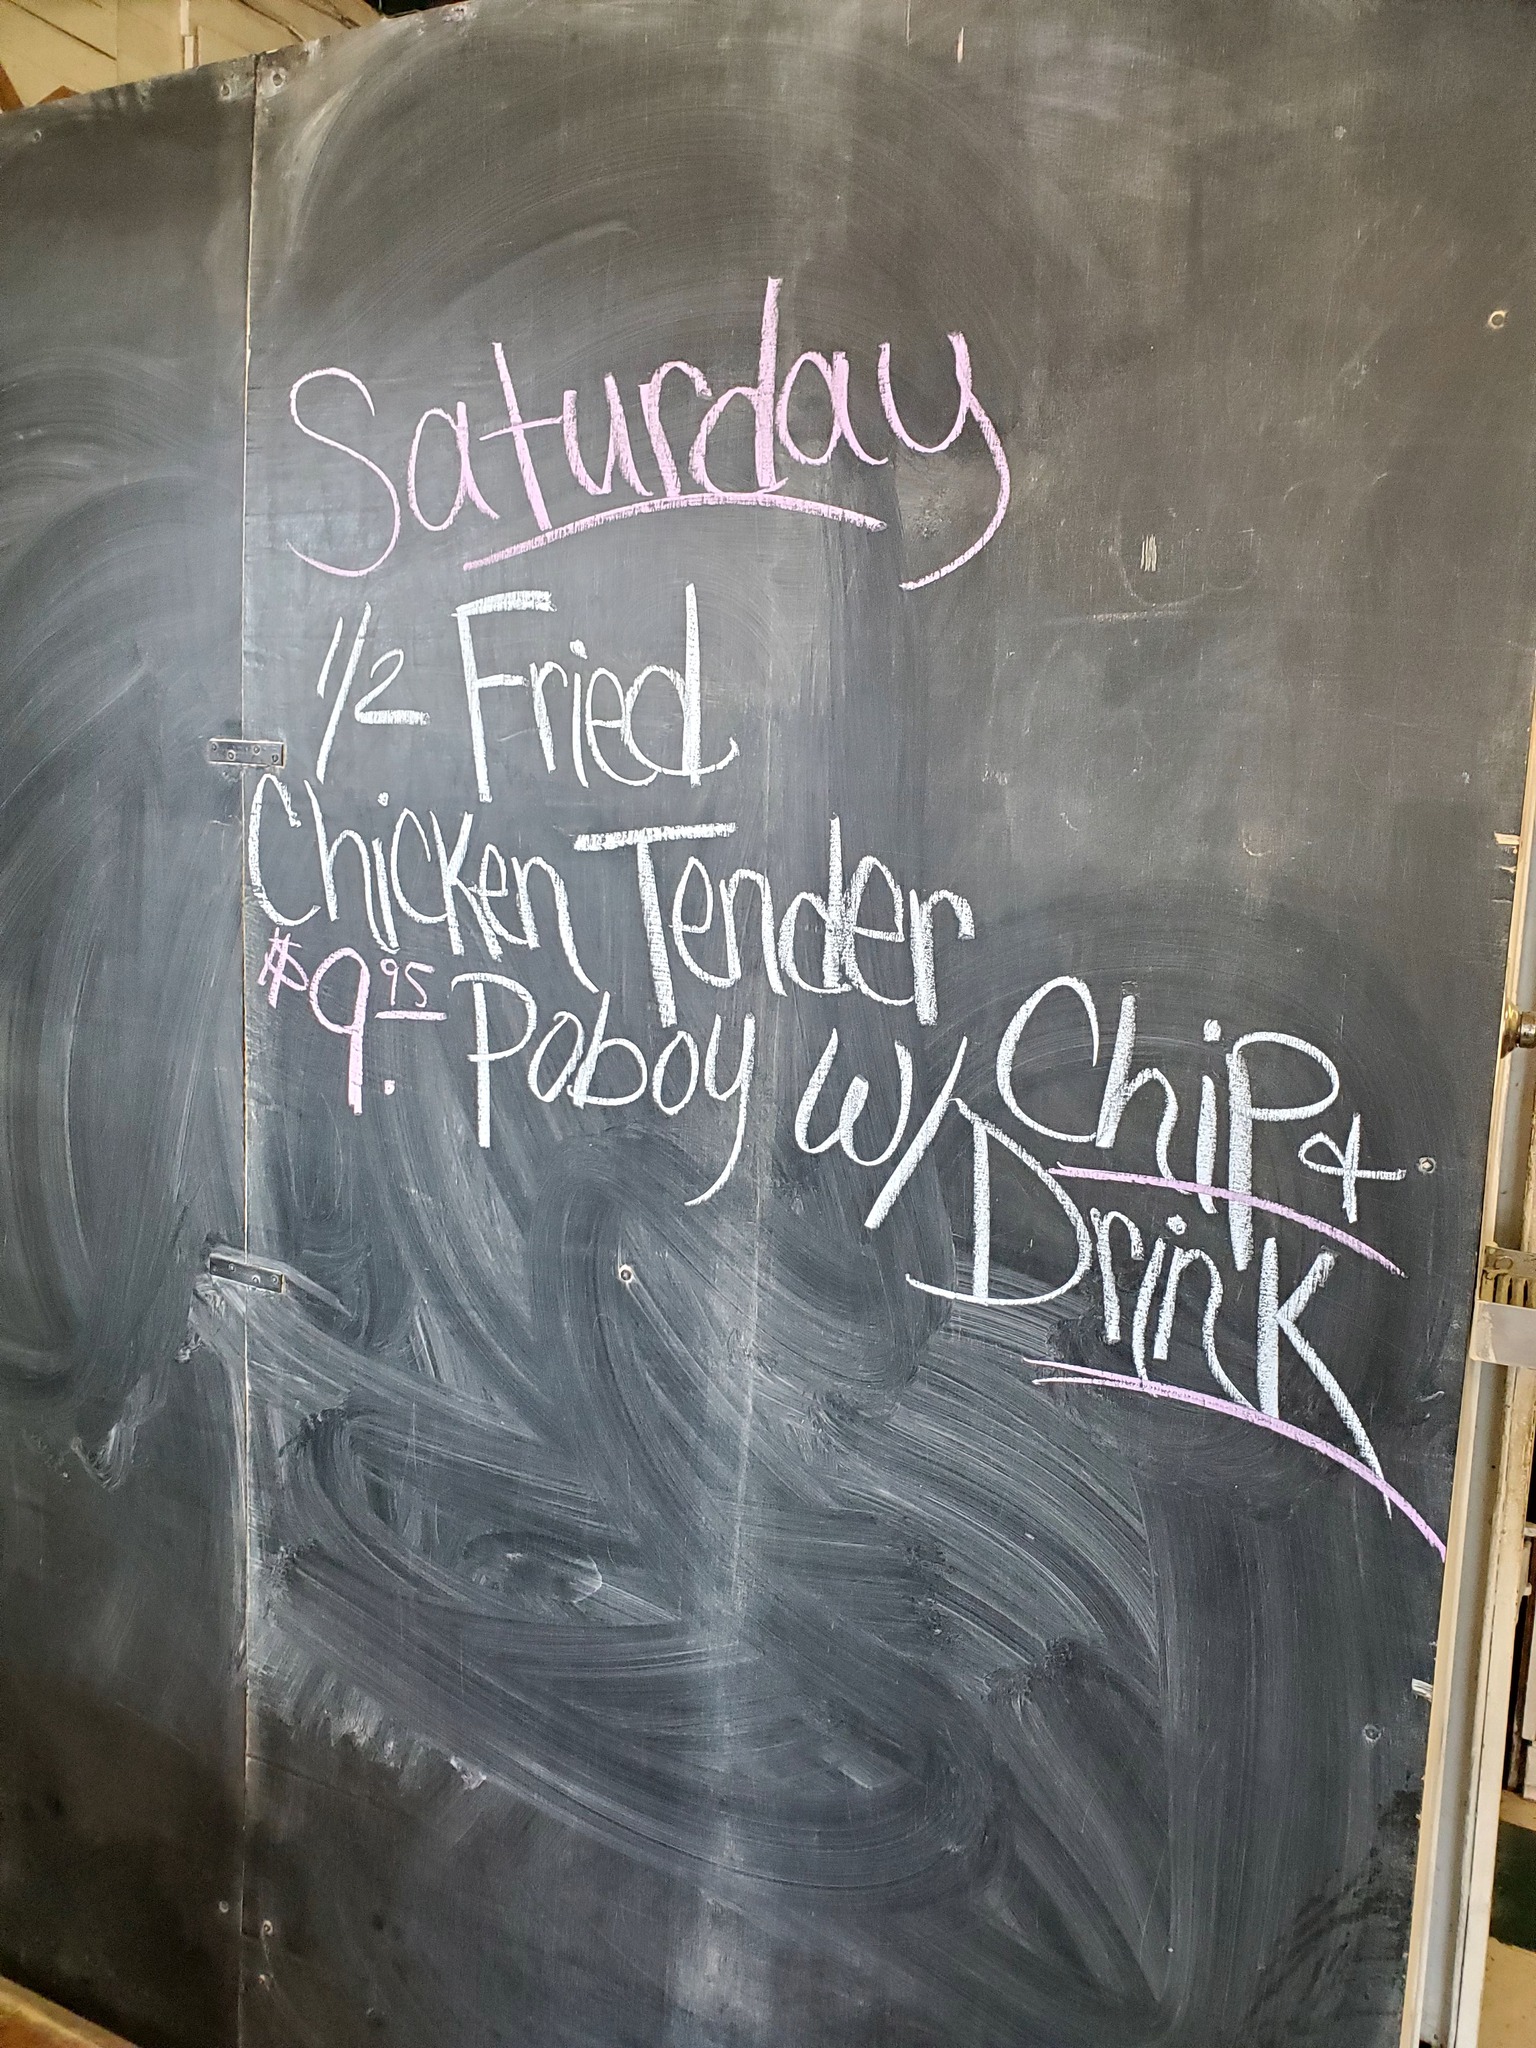 Saturday
1/2 Fried
Chicken Tender
$9.95 Poboy w/ Chip +
Drink